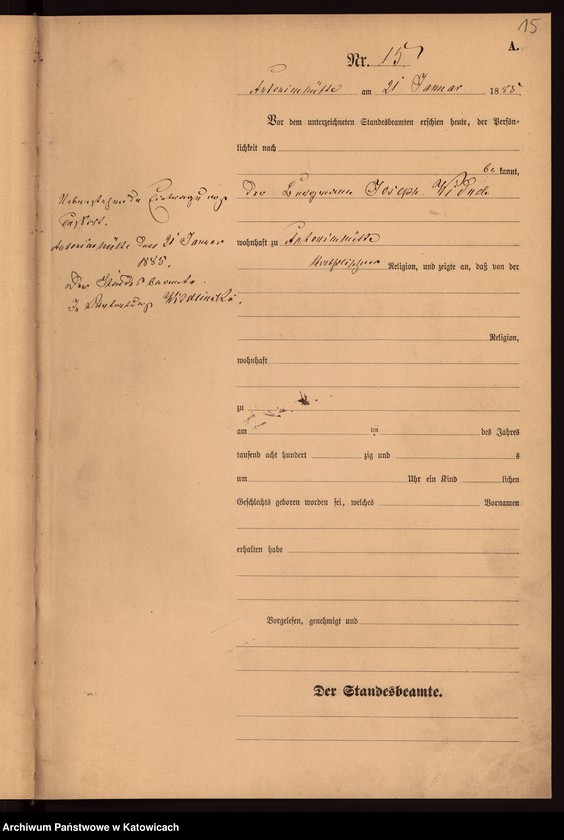 15
A.
Nr. 15
Antonienhütte am 21 Januar 1885.
Vor dem unterzeichneten Standesbeamten erschien heute, der Persön-
lichkeit nach
be kannt,
der Bergmann Joseph
wohnhaft zu Antonienhütte
katholischer Religion, und zeigte an, daß von der
Religion,
wohnhaft
zu
am im des Jahres
tausend acht hundert zig und s
um Uhr ein Kind lichen
Geschlechts geboren worden sei, welches Vornamen
erhalten habe
Vorgelesen, genehmigt und
Der Standesbeamte.
Eintragung
Antonienhütte den 21 Januar
1885.
Der Standesbeamte.
In Vertretung
Archiwum Państwowe w Katowicach